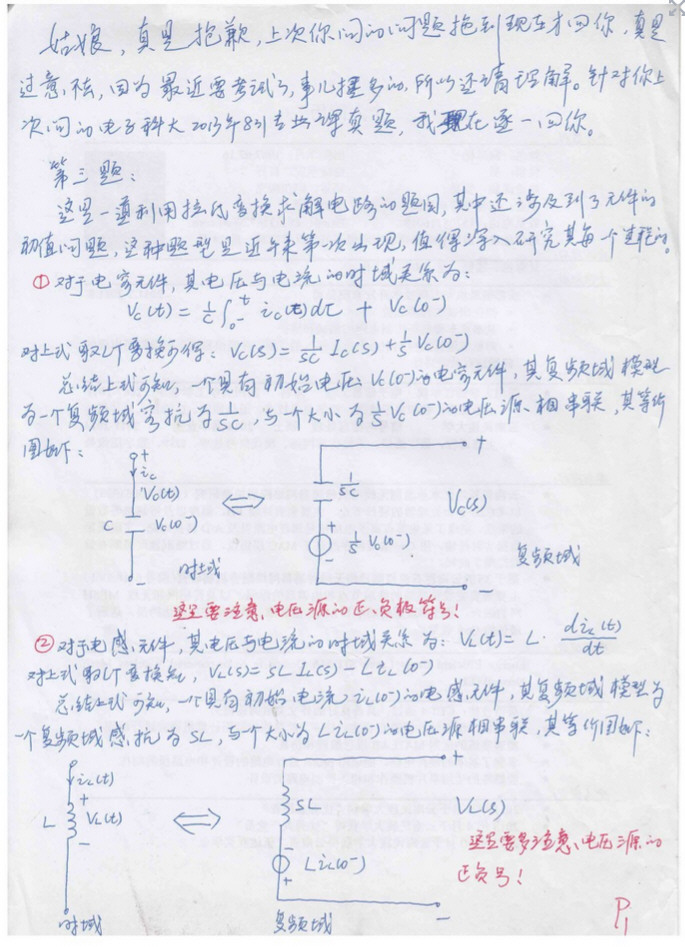 姑娘，真是抱歉，上次你问的问题拖到现在才回你，真是
过意不去，因为最近要考试了，事儿挺多的，所以还请谅解。针对你上
次问的电子科大2013年831专业课真题，我现在逐一回你。
第三题：
这是一道利用拉氏变换求解电路的题目，其中还涉及到了元件的
初值问题，这种题型是近年来第一次出现，值得深入研究其每个过程的。
①对于电容元件，其电压与电流的时域关系为：
Vc(t) = 1/C ∫₀₋ᵗ ic(τ)dτ + Vc(0⁻)
对上式取LT变换可得：Vc(s) = 1/SC Ic(s) + 1/S Vc(0⁻)
总结上式可知，一个具有初始电压Vc(0⁻)的电容元件，其复频域模型
为一个复频域容抗为1/SC，与一个大小为1/S Vc(0⁻)的电压源相串联，其等价
图如下：
+
ic
Vc(t)
C
Vc(0⁻)
时域
⇔
+
1/SC
+
1/S Vc(0⁻)
-
Vc(s)
复频域
这里要注意电压源的正、负极符号！
②对于电感元件，其电压与电流的时域关系为：VL(t) = L · diL(t)/dt
对上式取LT变换知，VL(s) = SL IL(s) - L iL(0⁻)
总结上式可知，一个具有初始电流iL(0⁻)的电感元件，其复频域模型为
一个复频域感抗为SL，与一个大小为L iL(0⁻)的电压源相串联，其等价图如下：
iL(t)
+
L
VL(t)
-
时域
⇔
+
SL
-
L iL(0⁻)
+
VL(s)
-
复频域
这里要多注意电压源的
正负号！
P1